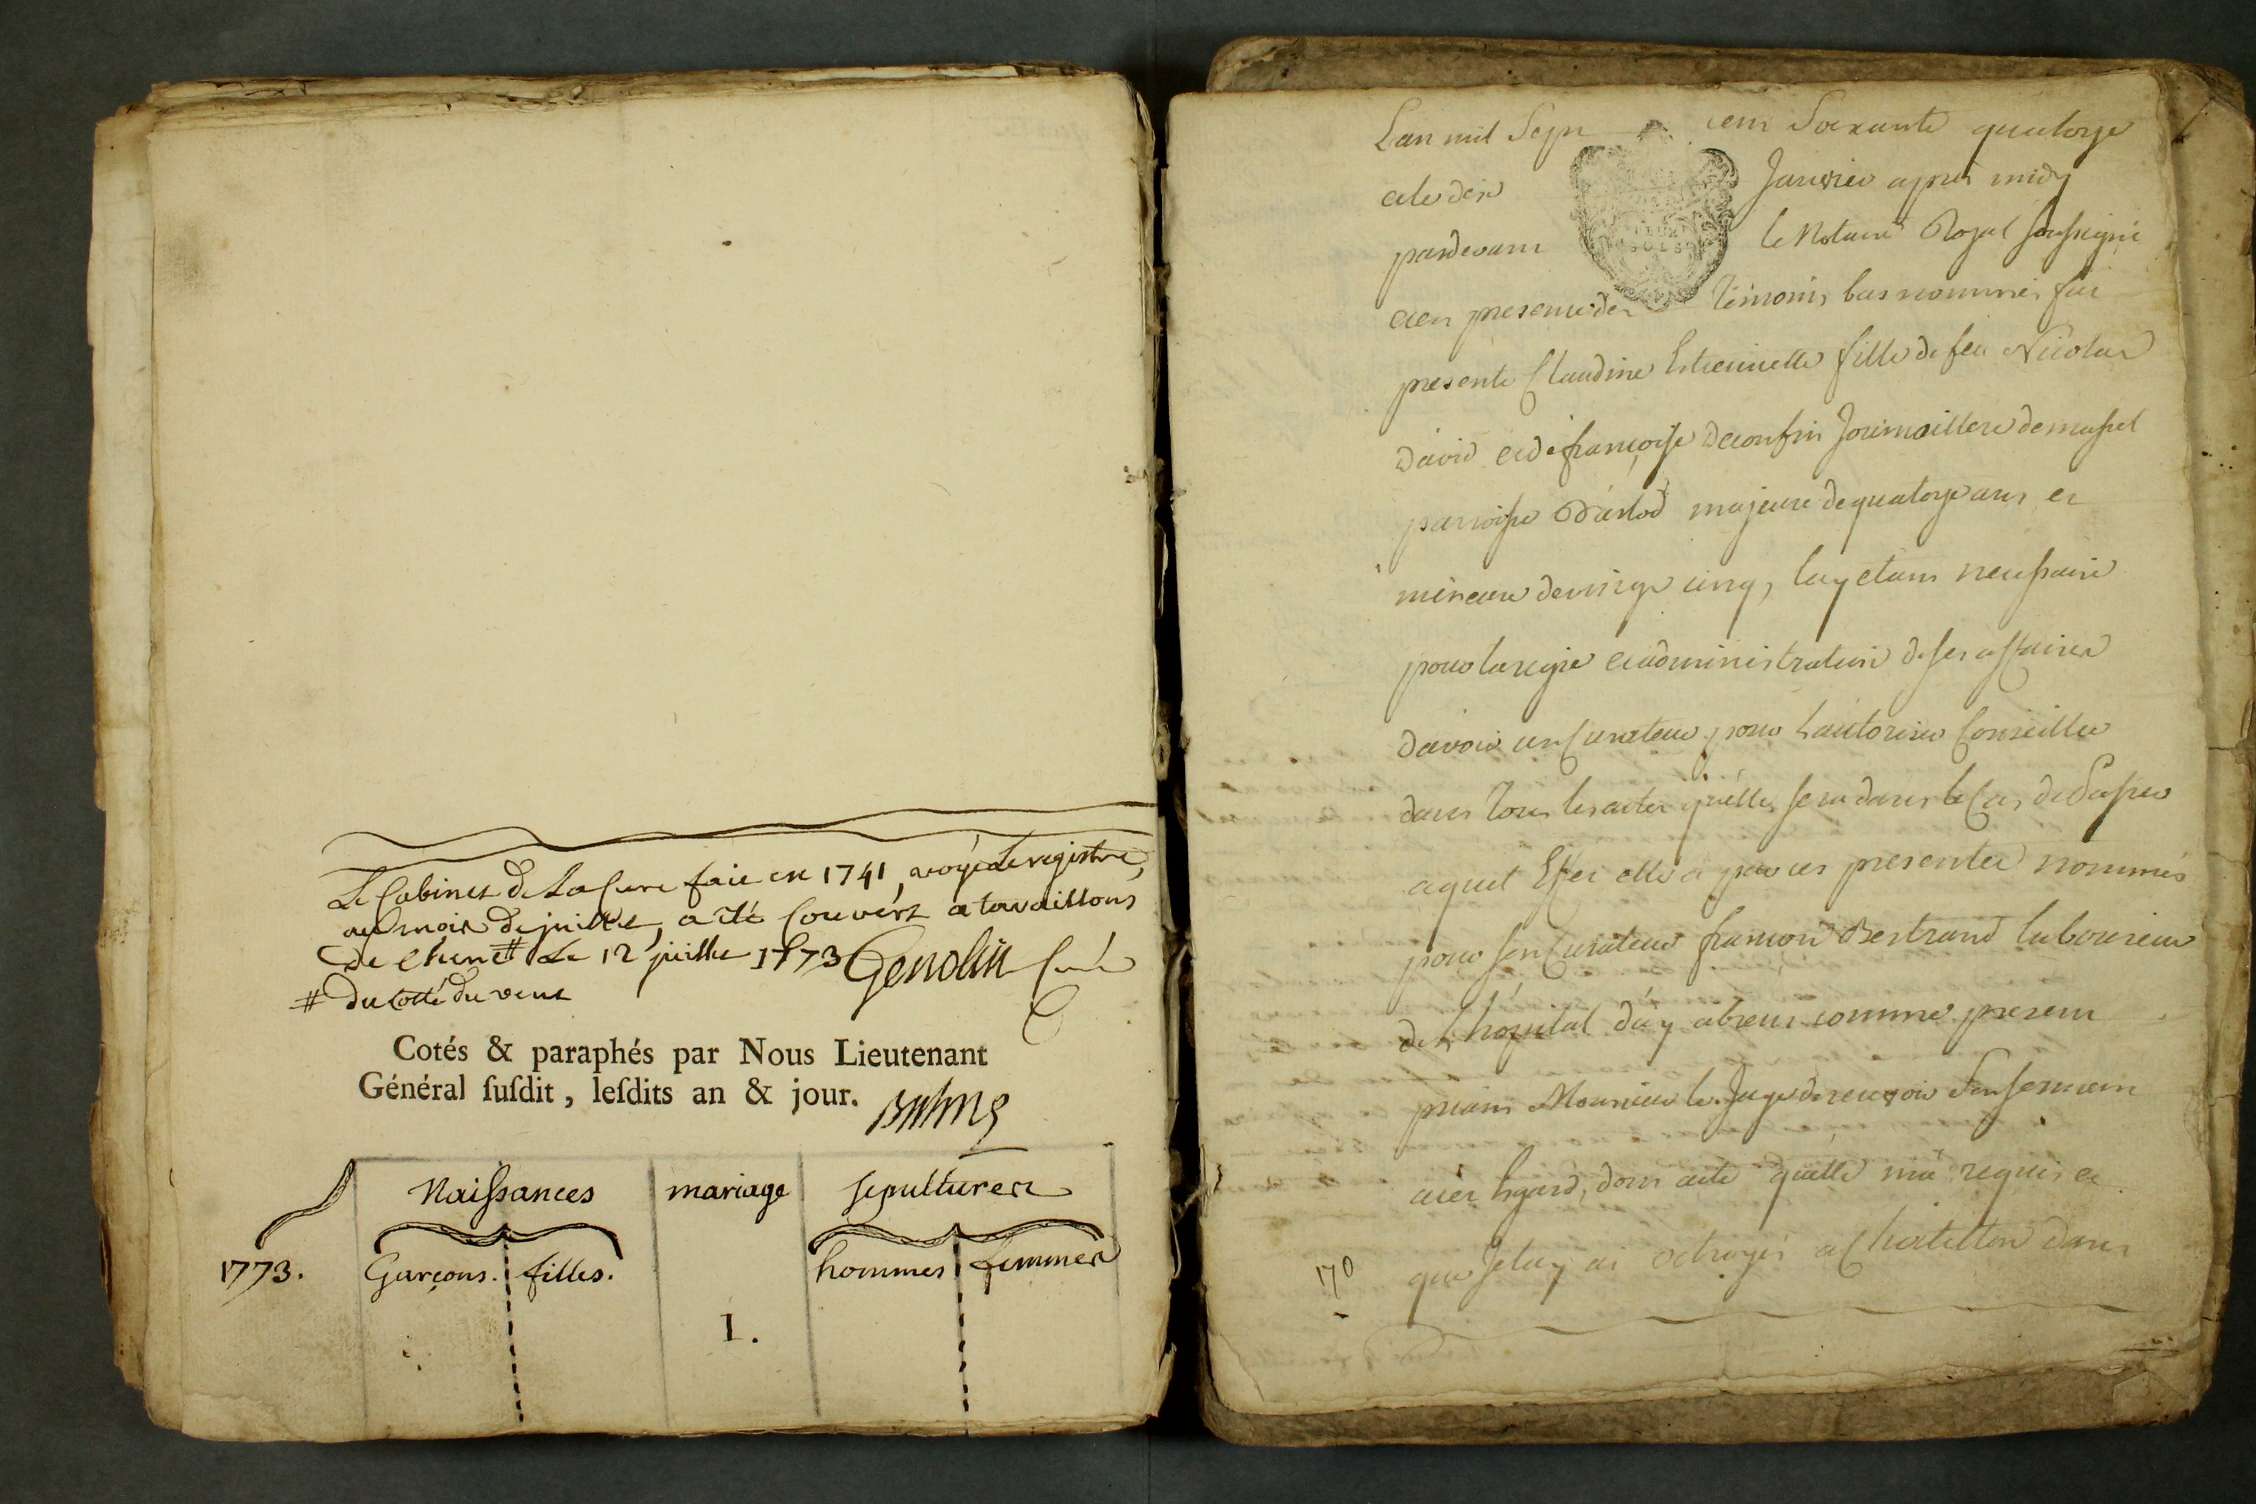 Le Cabinet de La Cure fait en 1741, voyé le registre,
au mois de juillet, a été Couvért a tavaillons
de chene # Le 12 juillet 1773 Genolin Curé
# du cotté du vent
Cotés & paraphés par Nous Lieutenant
Général ſuſdit, leſdits an & jour.
Naissances mariage sepultures
1773. Garçons. filles. hommes femmes
1.
Lan mil Sept cent Soixante quatorze
et le dix Janvier apres midy
pardevant le Notaire Royal soussigné
et en presence des Témoins bas nommés fut
presente Claudine Estiennette fille de feu Nicolas
David et de françoise Journaillere de
parroisse D'arlod majeure de quatorze ans et
mineure de vingt cinq, luy etant necessaire
pour la regie et administration de ses affaires
d'avoir un Curateur pour L'autoriser Conseiller
dans Tous les actes qu'elle sera dans le Cas de Passer
a quel Effet elle a par ces presentes nommés
pour son Curateur françois Bertrand laboureur
de L'hopital d'ay absent comme present
priant Monsieur le Juge de recevoir Son serment
a cet Egard, dont acte qu'elle m'a requis et
que Je luy ai octroyés a Chatillon dans
170